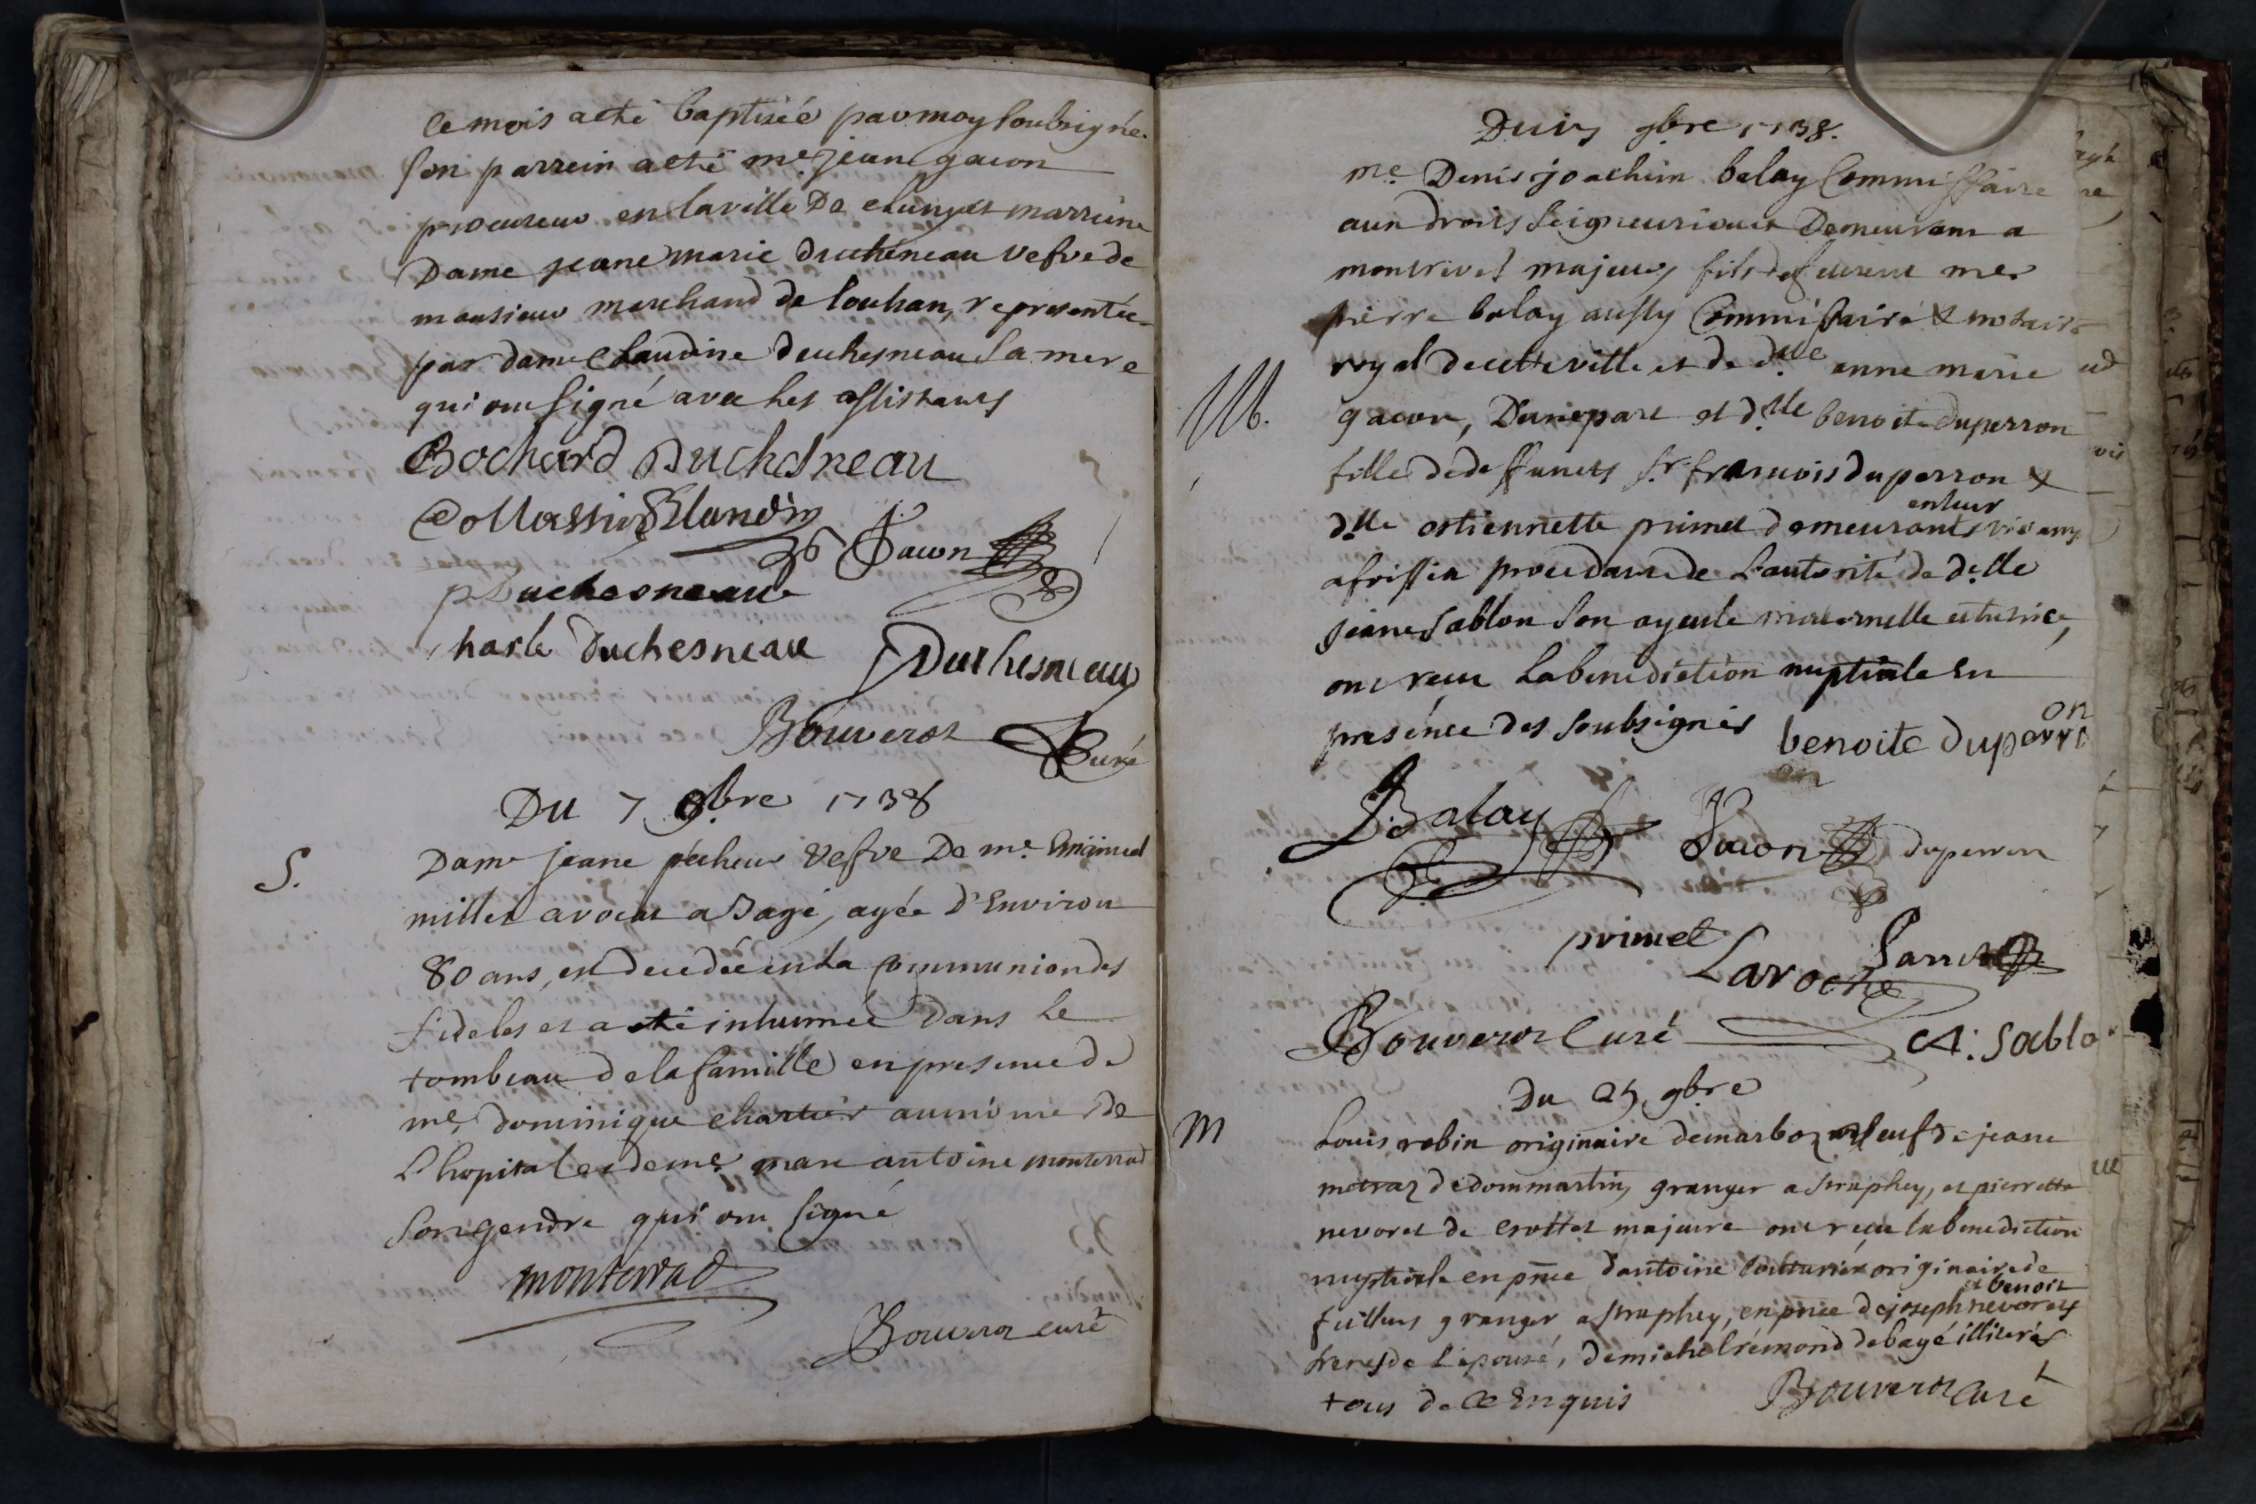 ce mois a eté baptiseé par moy soubsigné
son parrein a eté me. jean gacon
procureur en la ville De cluny et marreine
Dame jeane marie duchéneau vefve de
monsieur marchand de louhan, representée
par dame Claudine duchesneau sa mere
qui ont signé avec les assistants
Bochard Duchesneau
Blandin
Gacon
p Duchesneau
charle Duchesneau
Duchesneau
Bouveror Curé
Du 7 9bre 1738
S.
Dame jeane pécheur vefve De me.
millet avocat a Bagé, agée d'Environ
80 ans, est decedée en la Communion des
fideles et a eté inhumée Dans le
tombeau de la famille en presence de
me. dominique chartier aumônier de
L'hopital et de me. marc antoine monterrad
son gendre qui ont signé
monterrad
Bouveror curé
Du 9bre 1738.
me. Denis joachim balay Commissaire
aux droits seigneuriaux Demeurant a
montrivel majeur, fils de me.
pierre balay aussy Commissaire & notaire
royal de cette ville et de dlle anne marie
M.
gacon, D'une part et dlle benoite duperron
fille de deffuncts sr. francois duperron &
dlle estiennette primet demeurants
en leur
a froissia procedante de L'autorité de dlle
jeane sablon son ayeule maternelle et tutrice,
ont receu La benediction nuptiale En
presence des soubsignés
benoite duperron
Balay
Gacon
duperron
primet
Laroche
Bouveror Curé
A: Sablo
Du 25 9bre
M
Louis robin originaire de marboz veuf de jeane
metraz de dommartin, granger a, et pierrette
nevoret de crottet majeure ont receu la benediction
nuptiale en pnce d'antoine originaire de
et benoit
granger a, en pnce de joseph nevorets
freres de L'epousé, de michel rémond de bagé illiterés
tous de ce Enquis
Bouveror Curé